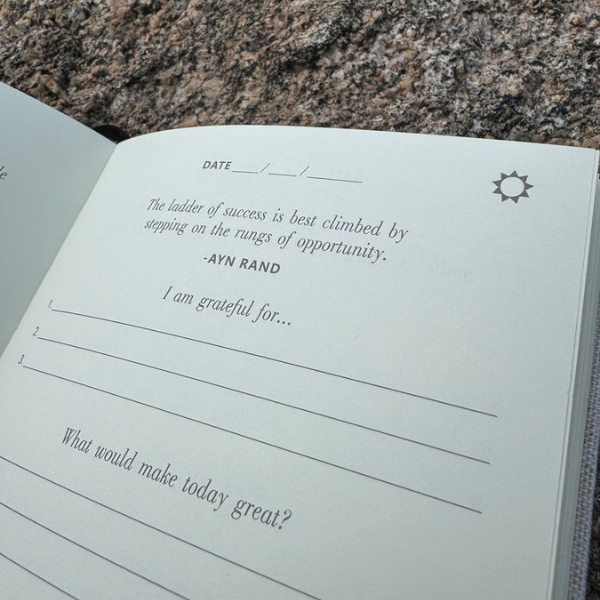 DATE___/___/______
The ladder of success is best climbed by
stepping on the rungs of opportunity.
-AYN RAND
I am grateful for...
1.
2.
3.
What would make today great?